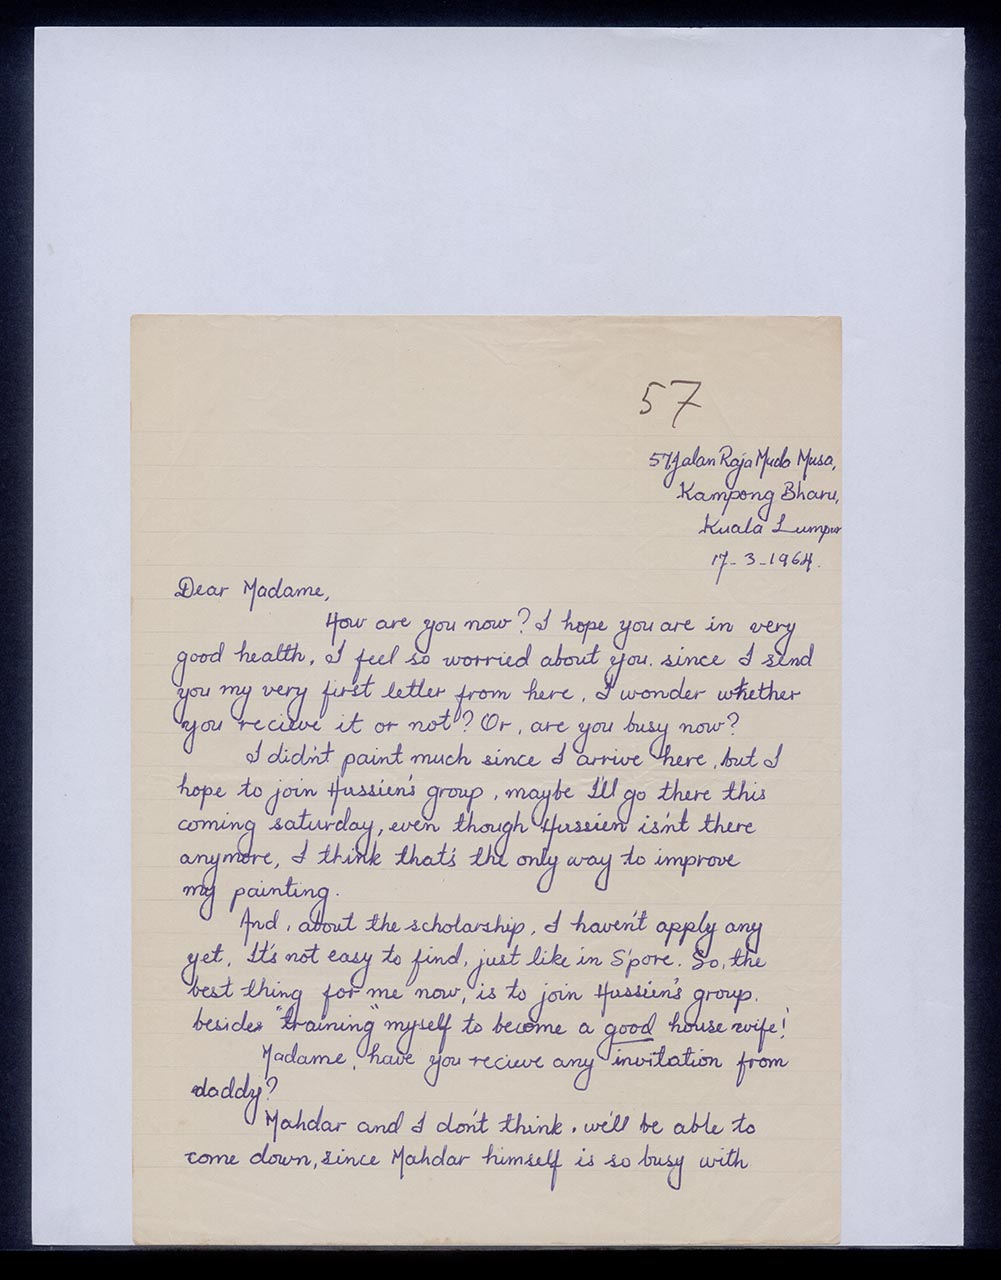 57
57 Jalan Raja Muda Musa,
Kampong Bharu,
Kuala Lumpur
17-3-1964.
Dear Madame,
How are you now? I hope you are in very
good health. I feel so worried about you. since I send
you my very first letter from here. I wonder whether
you recieve it or not? Or, are you busy now?
I didn't paint much since I arrive here, but I
hope to join Hussien's group, maybe I'll go there this
coming saturday, even though Hussien isn't there
anymore, I think that's the only way to improve
my painting.
And, about the scholarship, I haven't apply any
yet. It's not easy to find, just like in S'pore. So, the
best thing for me now, is to join Hussien's group.
besides "training" myself to become a good house wife!
Madame, have you recieve any invitation from
daddy?
Mahdar and I don't think, we'll be able to
come down, since Mahdar himself is so busy with